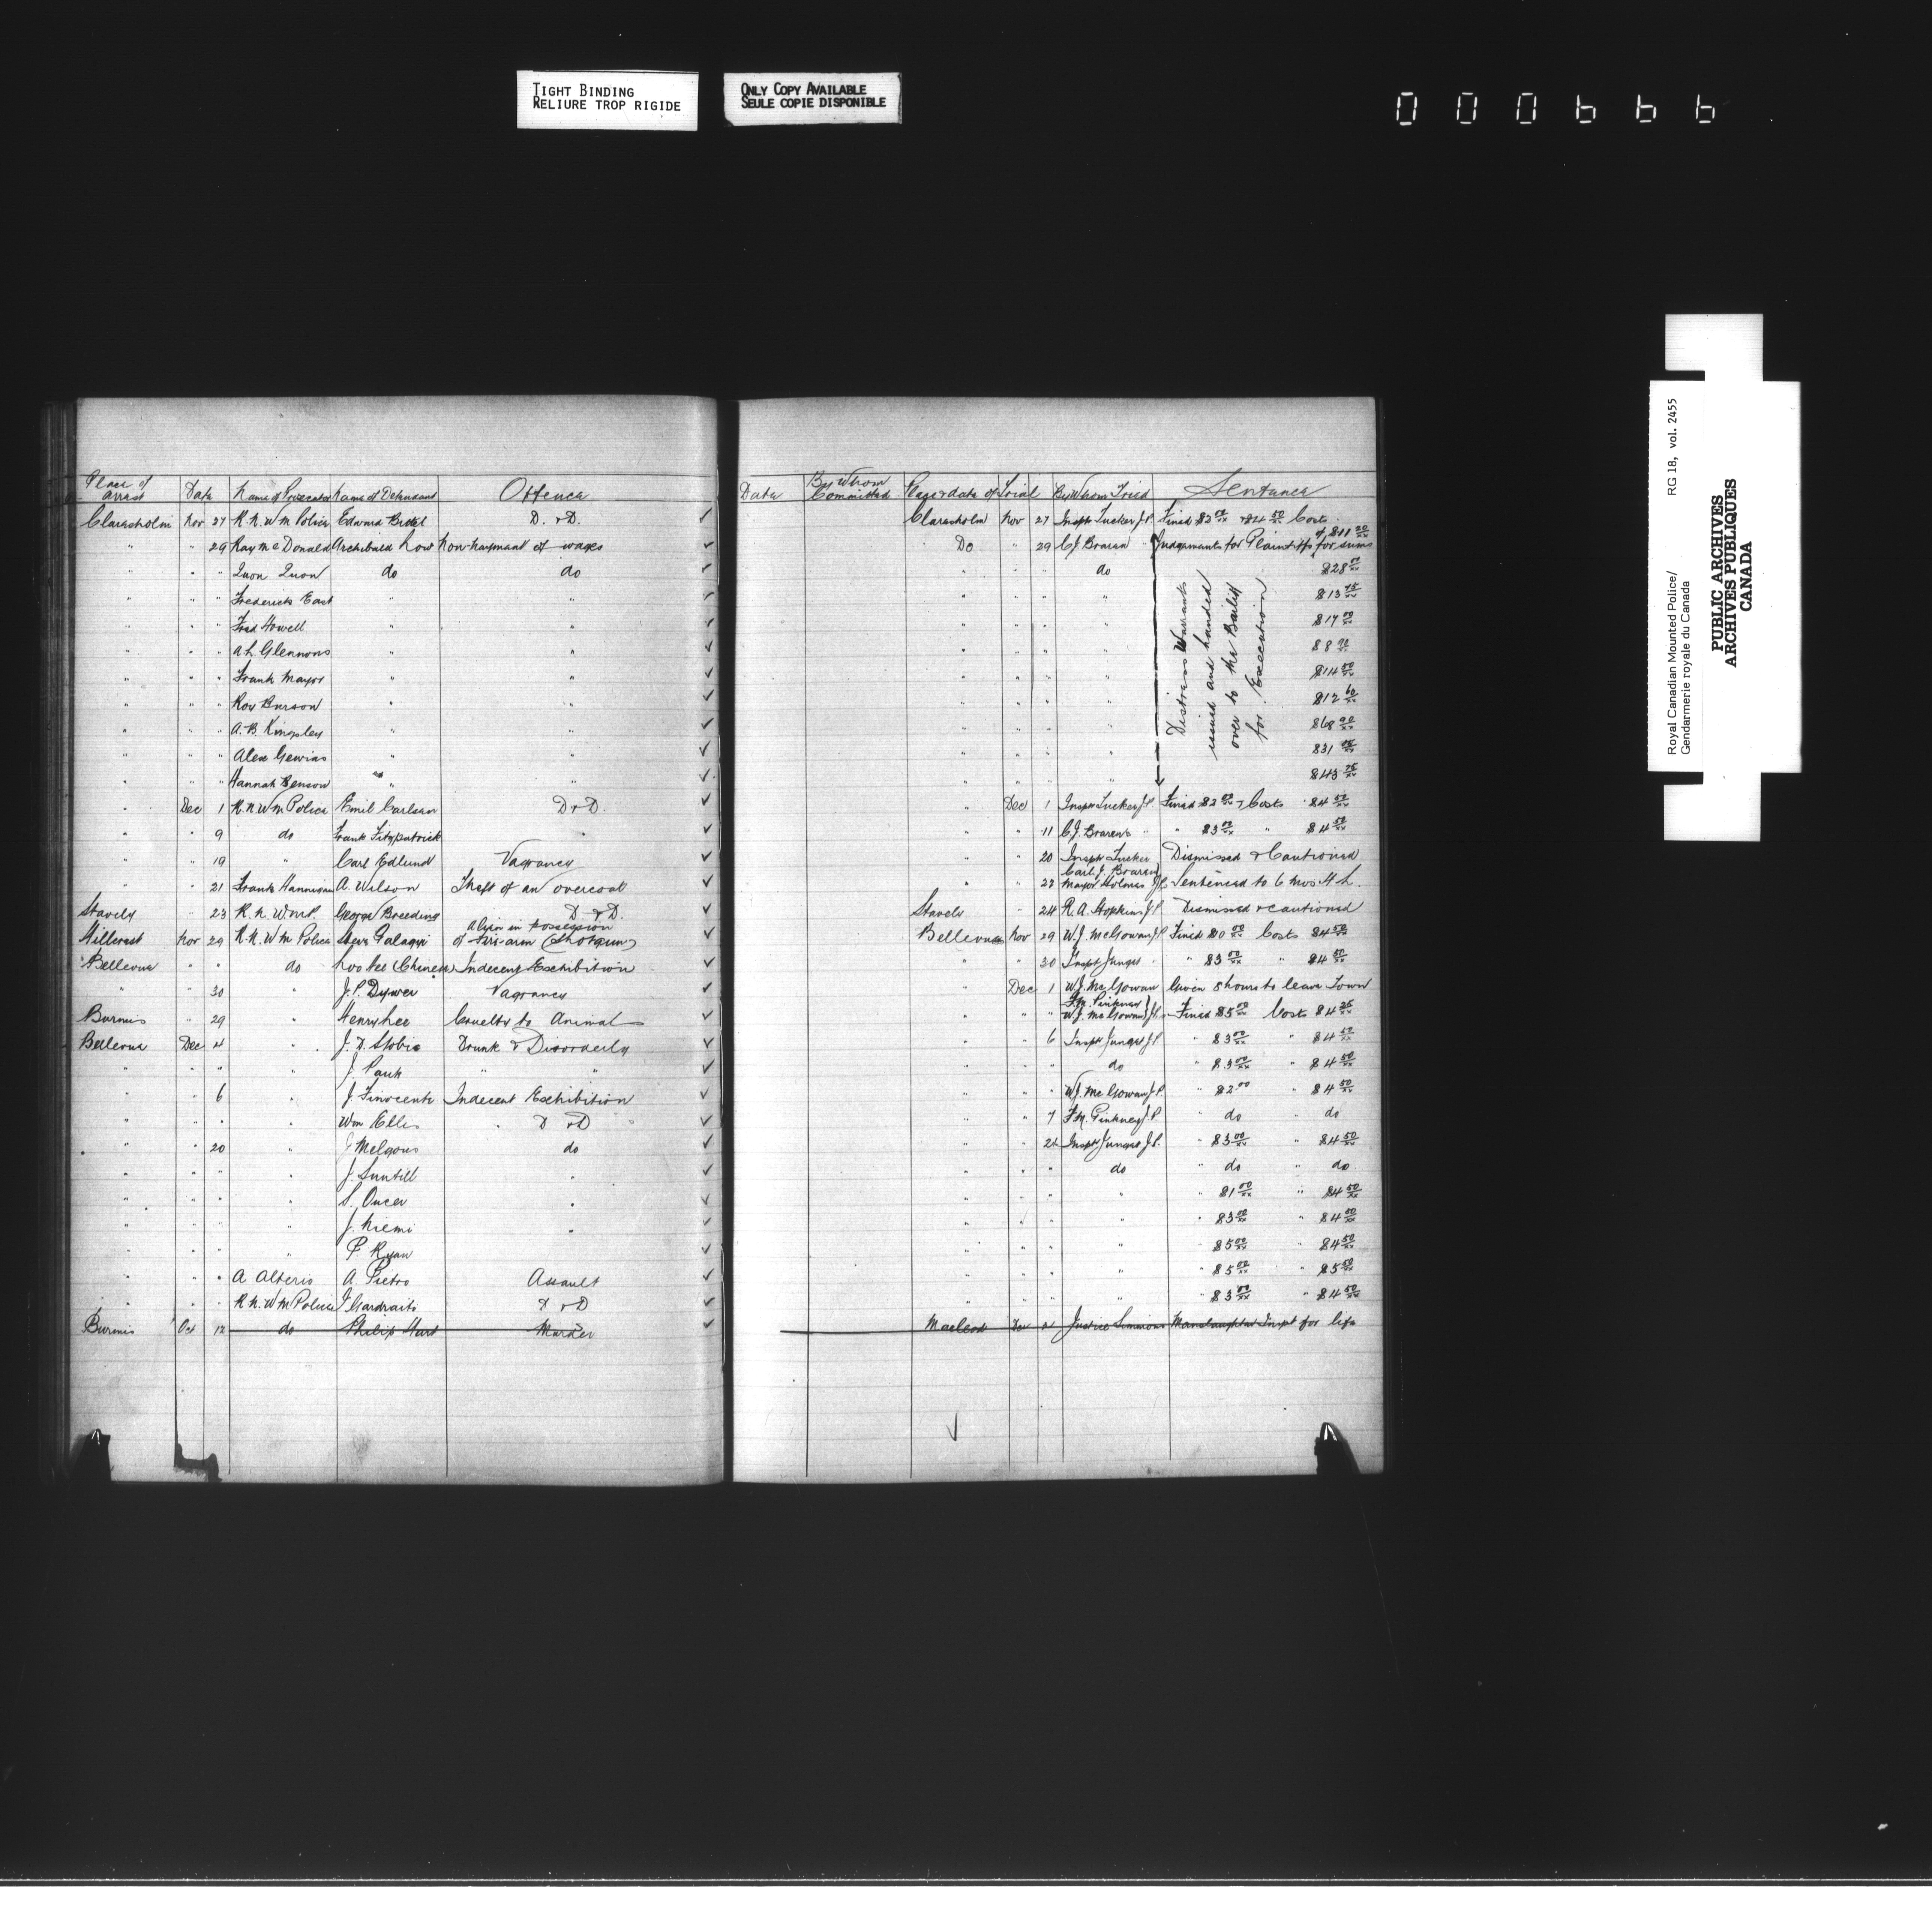 TIGHT BINDING
RELIURE TROP RIGIDE
ONLY COPY AVAILABLE
SEULE COPIE DISPONIBLE
000666
Place of Arrest Date Name of Prosecutor Name of Defendant Offence Date By Whom Committed Place & date of Trial By Whom Tried Sentence
Claresholm Nov 27 R.N.W.M Police Edward D. & D. ✓ Claresholm Nov 27 Inspt Tucker J.P. Fined $2 00/xx & $4 50/xx Costs
" " 29 Ray McDonald Archibald Low Non-payment of wages ✓ Do " 29 C.J. Braren " Judgements for Plaintiffs for sums of $11 20/xx
" " " Quon Quon do do ✓ " " " do $28 00/xx
" " " Frederick East " " ✓ " " " " $13 75/xx
" " " Fred Howell " " ✓ " " " " $17 00/xx
" " " A.L. Glennons " " ✓ " " " " $8
" " " Frank Mayor " " ✓ " " " " $14 50/xx
" " " Roy Burson " " ✓ " " " " $12 60/xx
" " " A.B. Kingsley " " ✓ " " " " $68 90/xx
" " " Alex Gewins " " ✓ " " " " $31
" " " Hannah Benson " " ✓ " " " " $43 75/xx
Distress Warrants
issued and handed
over to the Bailiff
for Execution
" Dec 1 R.N.W.M Police Emil Carlson D & D. ✓ " Dec 1 Inspt Tucker J.P. Fined $2 00/xx & Costs $4 50/xx
" " 9 do Frank Fitzpatrick " ✓ " " 11 C.J. Braren " " $3 00/xx " $4 50/xx
" " 19 " Carl Edlund Vagrancy ✓ " " 20 Inspt Tucker Dismissed & Cautioned
" " 21 Frank Hannigan A. Wilson Theft of an overcoat ✓ " " 22 Carl J. Braren Mayor Holmes J.P. Sentenced to 6 mos. H.L.
Stavely " 23 R.N.W.M.P. George Breeding D. & D. ✓ Stavely " 24 R.A. Hopkins J.P. Dismissed & cautioned
Hillcrest Nov 29 R.N.W.M Police Galaggi Alien in possession of fire-arm (Shotgun) ✓ Bellevue Nov 29 W.J. McGowan J.P. Fined $0 00/xx Costs $4 50/xx
Bellevue " " do Loo Lee (Chinese) Indecent Exhibition ✓ " " 30 Inspt Junget " " $3 00/xx " $4 50/xx
" " 30 " J.P. Dywer Vagrancy ✓ " Dec 1 W.J. McGowan Given 8 hours to leave Town
Burmis " 29 " Henry Lee Cruelty to Animal ✓ " " " F.M. Pinkney W.J. McGowan J.P.s Fined $5 00/xx Costs $4 25/xx
Bellevue Dec 4 " J.D. Stobie Drunk & Disorderly ✓ " " 6 Inspt Junget J.P. " $3 00/xx " $4 50/xx
" " " " J. Pauk " " ✓ " " " do " $3 00/xx " $4 50/xx
" " 6 " J. Finocente Indecent Exhibition ✓ " " " W.J. McGowan J.P. " $2 00 " $4 50/xx
" " " " Wm Ellis D & D ✓ " " 7 F.M. Pinkney J.P. " do " do
" " 20 " J Melgous do ✓ " " 21 Inspt Junget J.P. " $3 00/xx " $4 50/xx
" " " " J. Suntill " ✓ " " " do " do " do
" " " " S. Oucer " ✓ " " " " " $1 00/xx " $4 50/xx
" " " " J. Niemi " ✓ " " " " " $3 00/xx " $4 50/xx
" " " " P. Ryan " ✓ " " " " " $5 00/xx " $4 50/xx
" " " A Alterio A. Pietro Assault ✓ " " " " " $5 00/xx " $5 50/xx
" " " R.N.W.M Police J Gardraits D & D ✓ " " " " " $3 00/xx " $4 50/xx
Burmis Oct 12 do Philip Hart Murder ✓ Macleod Dec 21 Justice Simmons Manslaughter Impt for life
✓
Royal Canadian Mounted Police/ RG 18, vol. 2455
Gendarmerie royale du Canada
PUBLIC ARCHIVES
ARCHIVES PUBLIQUES
CANADA